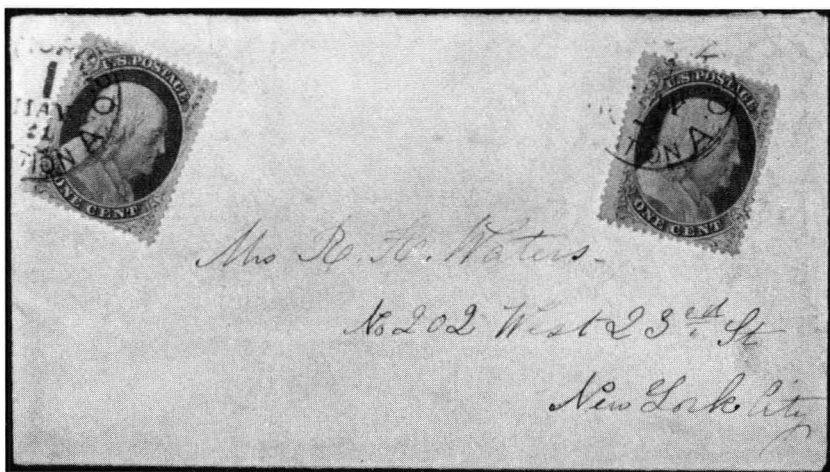 U.S. POSTAGE
ONE CENT
MAY
21
TION A.
U.S. POSTAGE
ONE CENT
TION A.
Mrs R. H. Waters.
No 202 West 23rd St
New York City